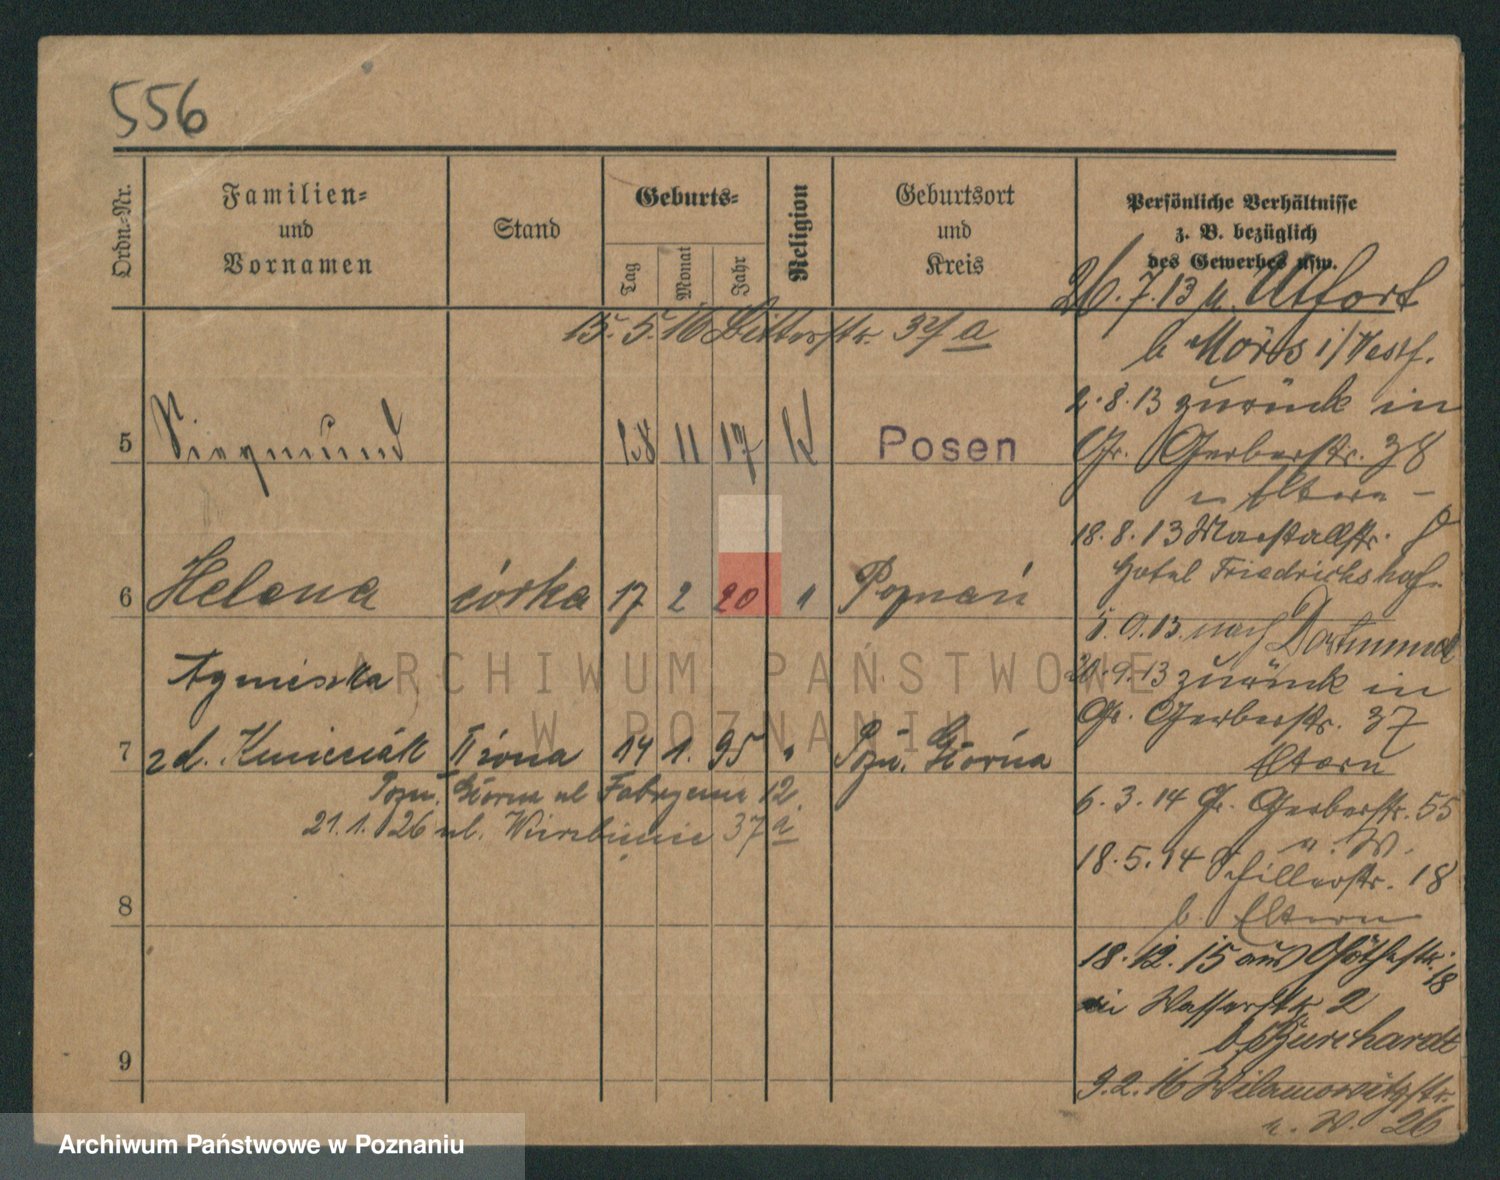 556
Ordn.-Nr.
Familien-
und
Vornamen
Stand
Geburts-
Tag
Monat
Jahr
Religion
Geburtsort
und
Kreis
Persönliche Verhältnisse
z. B. bezüglich
des Gewerbes usw.
15. 5. 16 37 a
5 Siegmund 11 17 K Posen
6 Helena córka 17 2 20 Poznań
Agnieszka
7 zd. II żona 14 1. 95 Górna
Górna ul 12.
21. 1. 26 ul. 37 a
8
9
26. 7. 13 n. Utfort
b Mörs i/Westf.
2. 8. 13 zurück in
Gr. Gerberstr. 38
Eltern
18. 8. 13 Marstallstr. 8
Hotel Friedrichshof
5. 9. 13. nach Dortmund
20. 9. 13 zurück in
Gr. Gerberstr. 37
Eltern
6. 3. 14 Gr. Gerberstr. 55
n. W.
18. 5. 14 Schillerstr. 18
b. Eltern
18. 12. 15 aus 18
in Wasserstr 2
b. Burchardt
9. 2. 16 Wilamowitzstr.
n. W. 26
ARCHIWUM PAŃSTWOWE
W POZNANIU
Archiwum Państwowe w Poznaniu